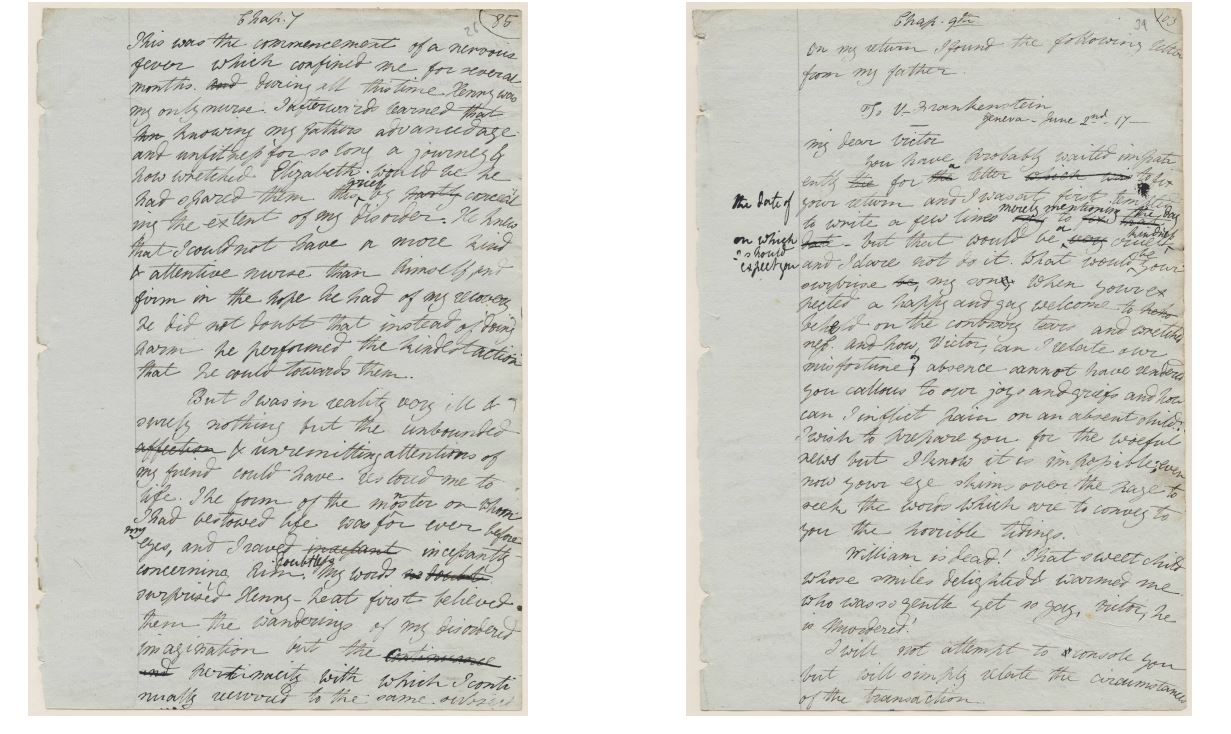 Chap. 7
26 85
This was the commencement of a nervous
fever which confined me for several
months. and during all this time Henry was
my only nurse. I afterwards learned that
he knowing my fathers advanced age
and unfitness for so long a journey &
how wretched Elizabeth would be he
grief
had spared them this by partly conceal
ing the extent of my disorder. He knew
that I could not have a more kind
& attentive nurse than himself and
firm in the hope he had of my recovery
he did not doubt that instead of doing
harm he performed the kindest action
that he could towards them.
But I was in reality very ill &
surely nothing but the unbounded
affection & unremitting attentions of
my friend could have restored me to
life. The form of the monster on whom
I had bestowed life was for ever before
my
eyes, and I raved incessant incessantly
doubtless
concerning him. My words no doubt
surprised Henry – he at first believed
them the wanderings of my disordered
imagination but the continuance
and pertinacity with which I conti
nually recurred to the same subject
Chap. 9th
39 103
On my return I found the following letter
from my father.
To V. Frankenstein
Geneva – June 2nd 17—
my dear Victor
You have probably waited impati
ently the for the a letter which was to fix
your return and I was at first tempted
the date of
merely mentioning the day
to write a few lines to
on which
I should
expect you
kindness
but that would be a very cruel
be
and I dare not do it. What would your
surprise be my son when you ex
pected a happy and gay welcome to
behold on the contrary tears and wretched
ness and how, Victor, can I relate our
misfortune? absence cannot have rendered
you callous to our joys and griefs and how
can I inflict pain on an absent child?
I wish to prepare you for the woeful
news but I know it is impossible; even
now your eye skims over the page to
seek the words which are to convey to
you the horrible tidings.
William is dead! That sweet child
whose smiles delighted & warmed me
who was so gentle yet so gay, Victor, he
is murdered!
I will not attempt to console you
but will simply relate the circumstances
of the transaction.